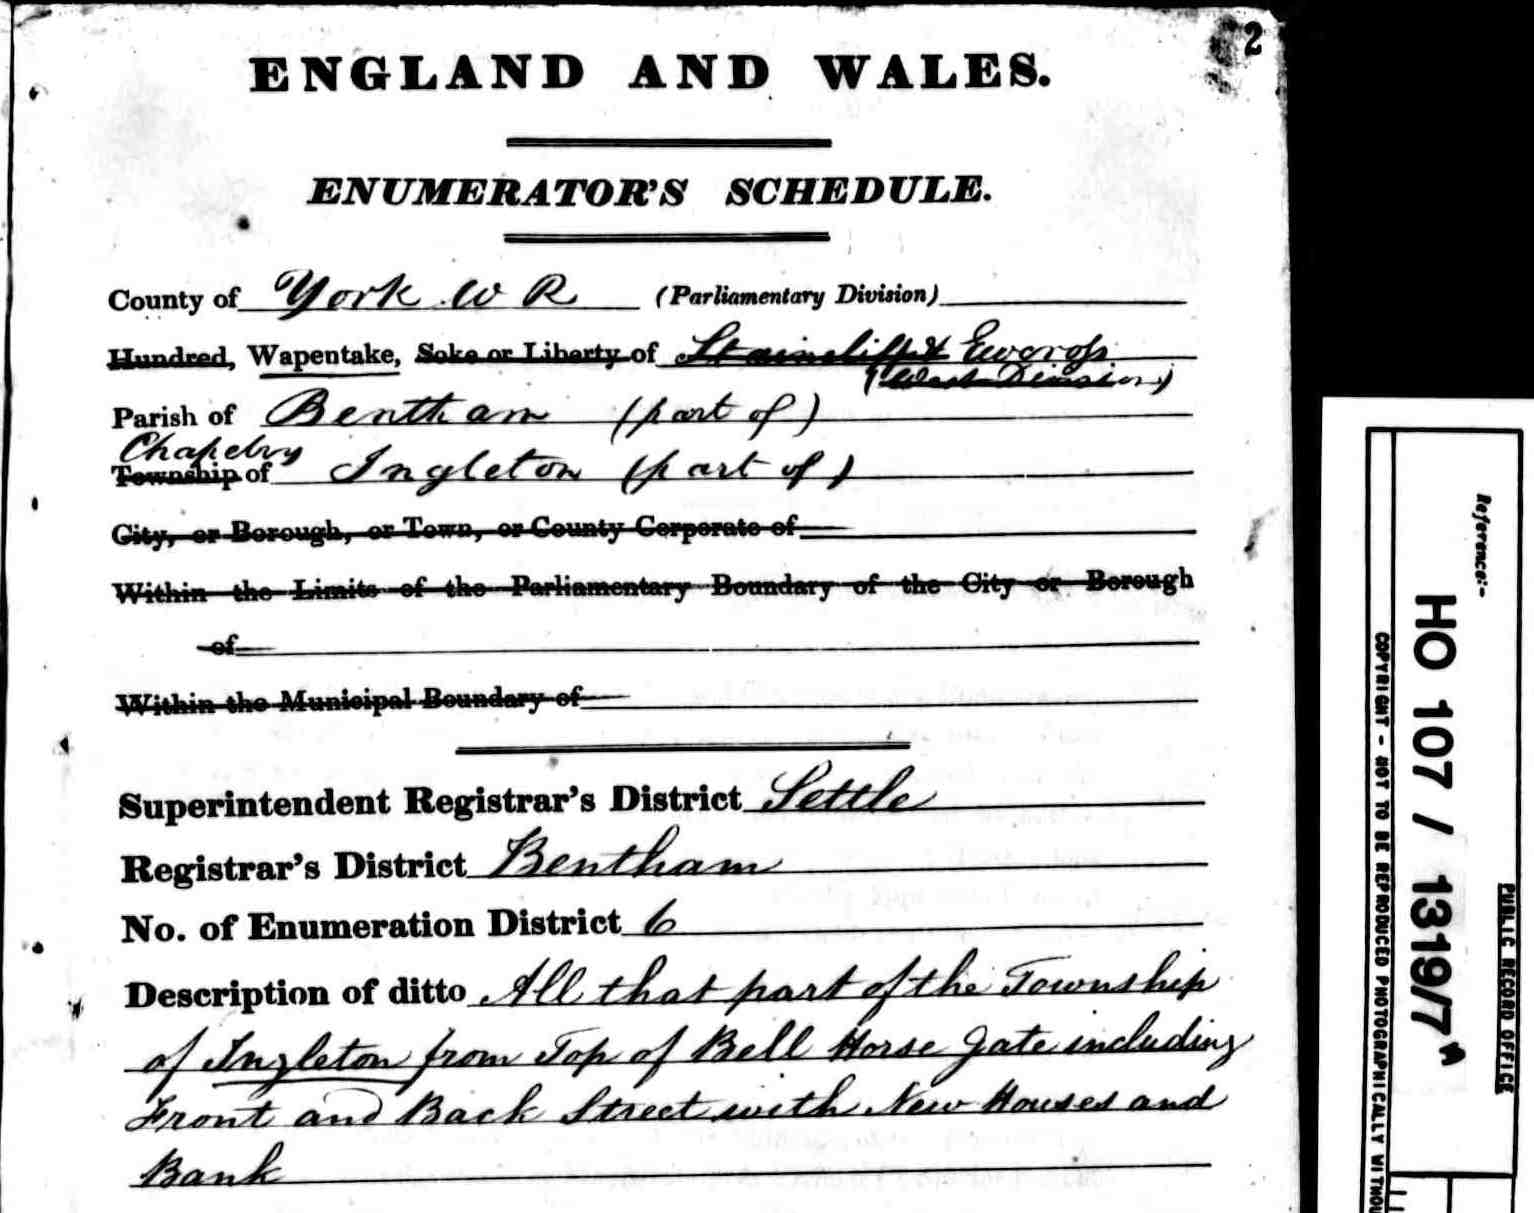 2
ENGLAND AND WALES.
ENUMERATOR'S SCHEDULE.
County of York W R (Parliamentary Division)
Hundred, Wapentake, Soke or Liberty of Staincliff & Ewcross
(West Division)
Parish of Bentham (part of)
Chapelry
Township of Ingleton (part of)
City, or Borough, or Town, or County Corporate of
Within the Limits of the Parliamentary Boundary of the City or Borough
of
Within the Municipal Boundary of
Superintendent Registrar's District Settle
Registrar's District Bentham
No. of Enumeration District 6
Description of ditto All that part of the Township
of Ingleton from Top of Bell Horse Gate including
Front and Back Street with New Houses and
Bank
Reference:-
HO 107 / 1319/7 A
PUBLIC RECORD OFFICE
COPYRIGHT - NOT TO BE REPRODUCED PHOTOGRAPHICALLY WITHOU